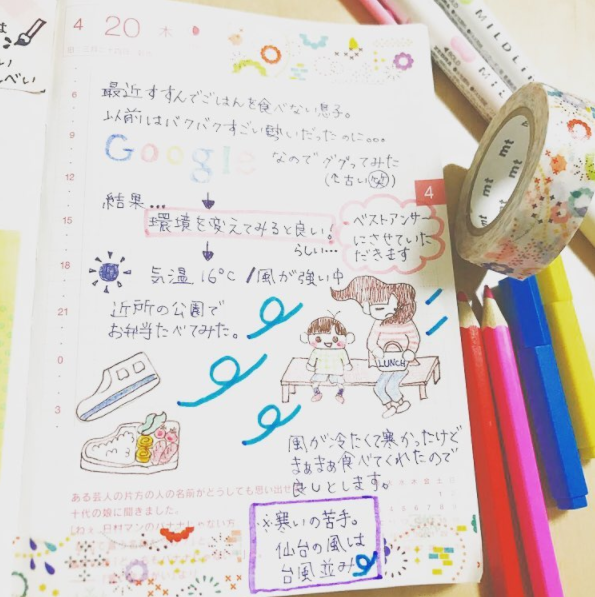 4 20 木
最近すすんでごはんを食べない息子。
以前はパクパクすごい勢いだったのに。。。
Google なのでググってみた
(←古い(笑))
結果...
環境を変えてみると良い!
らしい…
ベストアンサー
にさせていた
だきます
4
気温16℃/風が強い中
近所の公園で
お弁当たべてみた。
LUNCH
風が冷たくて寒かったけど
まぁまぁ食べてくれたので
良しとします。
※寒いの苦手。
仙台の風は
台風並み
6
9
12
15
18
21
0
3
ある芸人の片方の人の名前がどうしても思い出せ
十代の娘に聞きました。
「ねぇ、日村マンのバナナじゃない方
mt
mt
mt
MILDLI